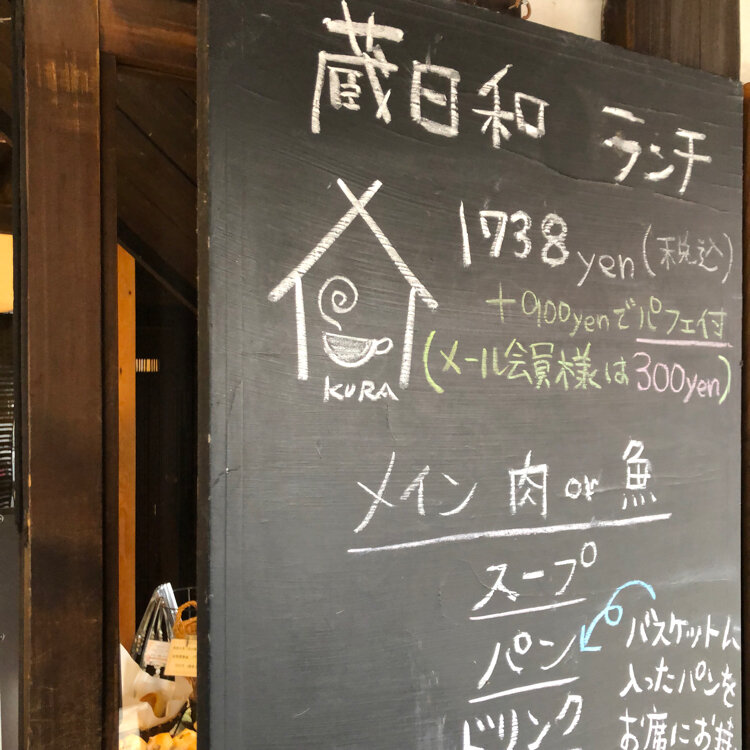 蔵日和 ランチ
1738yen(税込)
+900yenでパフェ付
(メール会員様は300yen)
KURA
メイン 肉or魚
スープ
パン
ドリンク
バスケットに
入ったパンを
お席にお持